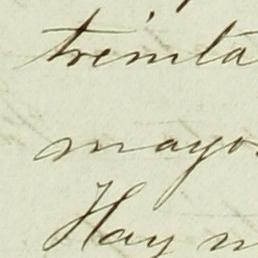 treinta
mayo
Hay